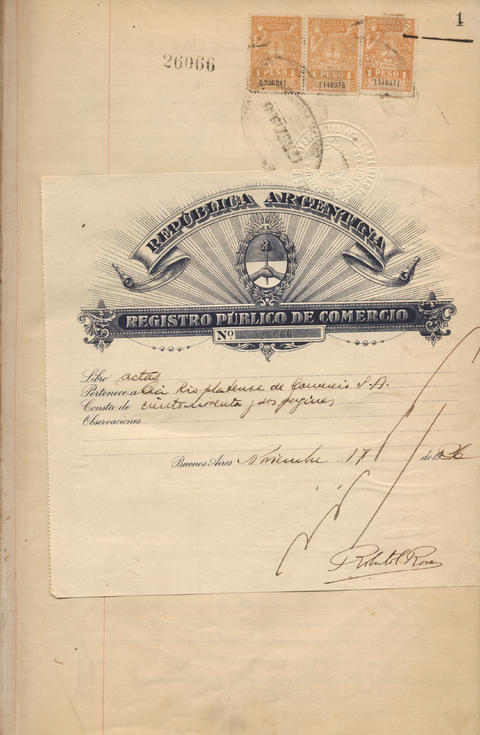 1
26066
1 PESO 1 PESO 1 PESO
1148076 1148077
REPÚBLICA ARGENTINA
REGISTRO PÚBLICO DE COMERCIO
Nº 26066
Libro actas
Pertenece a Cia Rioplatense de Comercio S.A.
Consta de ciento noventa y dos paginas
Observaciones
Buenos Aires Noviembre 17 de 1926